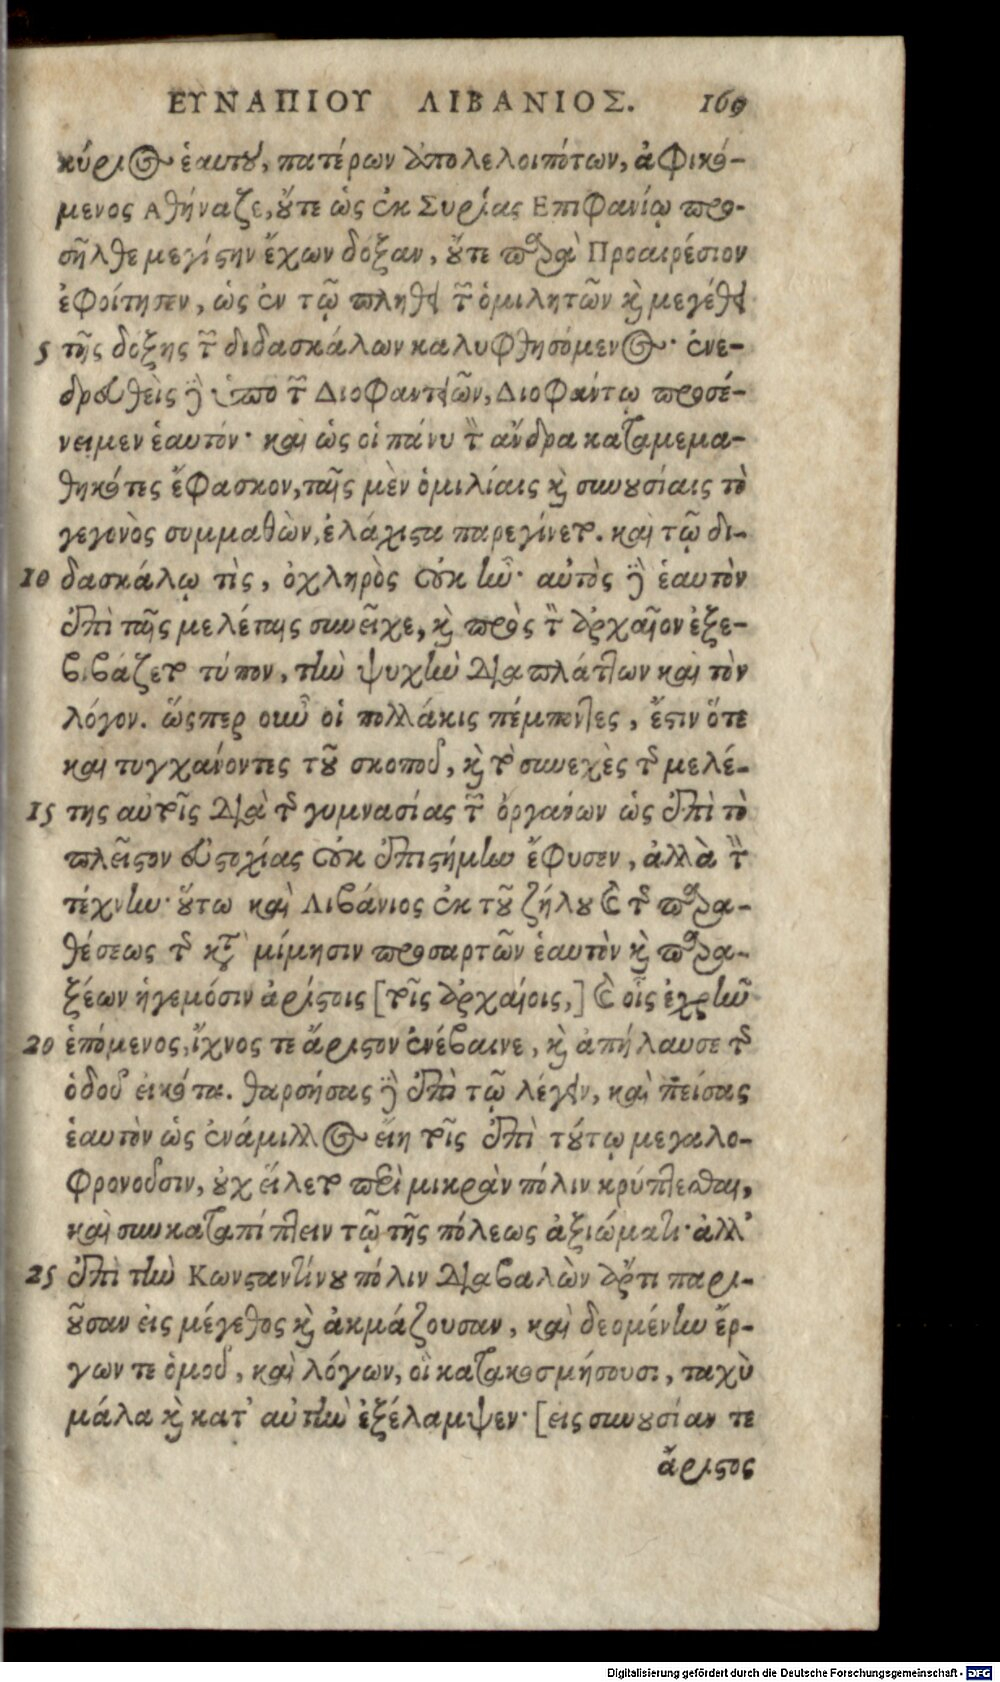 ΕΥΝΑΠΙΟΥ ΛΙΒΑΝΙΟΣ. 169
κύριος ἑαυτοῦ, πατέρων ἀπολελοιπότων, ἀφικό-
μενος Αθήναζε, οὔτε ὡς ἐκ Συρίας Επιφανίῳ προ-
σῆλθε μεγίστην ἔχων δόξαν, οὔτε παρὰ Προαιρέσιον
ἐφοίτησεν, ὡς ἐν τῷ πλήθει τῶν ὁμιλητῶν καὶ μεγέθει
5 τῆς δόξης τῶν διδασκάλων καλυφθησόμενος· ἐνε-
δρευθεὶς δὲ ὑπὸ τῶν Διοφαντείων, Διοφάντῳ προσέ-
νειμεν ἑαυτόν· καὶ ὡς οἱ πάνυ τὸν ἄνδρα καταμεμα-
θηκότες ἔφασκον, ταῖς μὲν ὁμιλίαις καὶ συνουσίαις τὸ
γεγονὸς συμμαθὼν, ἐλάχιστα παρεγίνετο. καὶ τῷ δι-
10 δασκάλῳ τὶς, ὀχληρὸς οὐκ ἦν· αὐτὸς δὲ ἑαυτὸν
ἐπὶ ταῖς μελέταις συνεῖχε, καὶ πρὸς τὸν ἀρχαῖον ἐξε-
βιβάζετο τύπον, τὴν ψυχὴν διαπλάττων καὶ τὸν
λόγον. ὥσπερ οὖν οἱ πολλάκις πέμποντες, ἔστιν ὅτε
καὶ τυγχάνοντες τοῦ σκοποῦ, καὶ τὸ συνεχὲς τῆς μελέ-
15 της αὐτοῖς διὰ τῆς γυμνασίας τῶν ὀργάνων ὡς ἐπὶ τὸ
πλεῖστον εὐστοχίας οὐκ ἐπιστήμην ἔφυσεν, ἀλλὰ τὴν
τέχνην· οὕτω καὶ Λιβάνιος ἐκ τοῦ ζήλου καὶ τῆς παρα-
θέσεως τῆς κατὰ μίμησιν προσαρτῶν ἑαυτὸν καὶ παρα-
ξέων ἡγεμόσιν ἀρίστοις [τοῖς ἀρχαίοις,] καὶ οἷς ἐχρῆν
20 ἑπόμενος, ἴχνος τε ἄριστον ἐνέβαινε, καὶ ἀπήλαυσε τῆς
ὁδοῦ εἰκότα. θαρσήσας δὲ ἐπὶ τῷ λέγειν, καὶ πείσας
ἑαυτὸν ὡς ἐνάμιλλος εἴη τοῖς ἐπὶ τούτῳ μεγαλο-
φρονοῦσιν, οὐχ εἵλετο περὶ μικρὰν πόλιν κρύπτεσθαι,
καὶ συγκαταπίπτειν τῷ τῆς πόλεως ἀξιώματι· ἀλλ'
25 ἐπὶ τὴν Κωνσταντίνου πόλιν διαβαλὼν ἄρτι παρι-
οῦσαν εἰς μέγεθος καὶ ἀκμάζουσαν, καὶ δεομένην ἔρ-
γων τε ὁμοῦ, καὶ λόγων, οἳ κατακοσμήσουσι, ταχὺ
μάλα καὶ κατ' αὐτὴν ἐξέλαμψεν· [εἰς συνουσίαν τε
ἄριστος
Digitalisierung gefördert durch die Deutsche Forschungsgemeinschaft - DFG